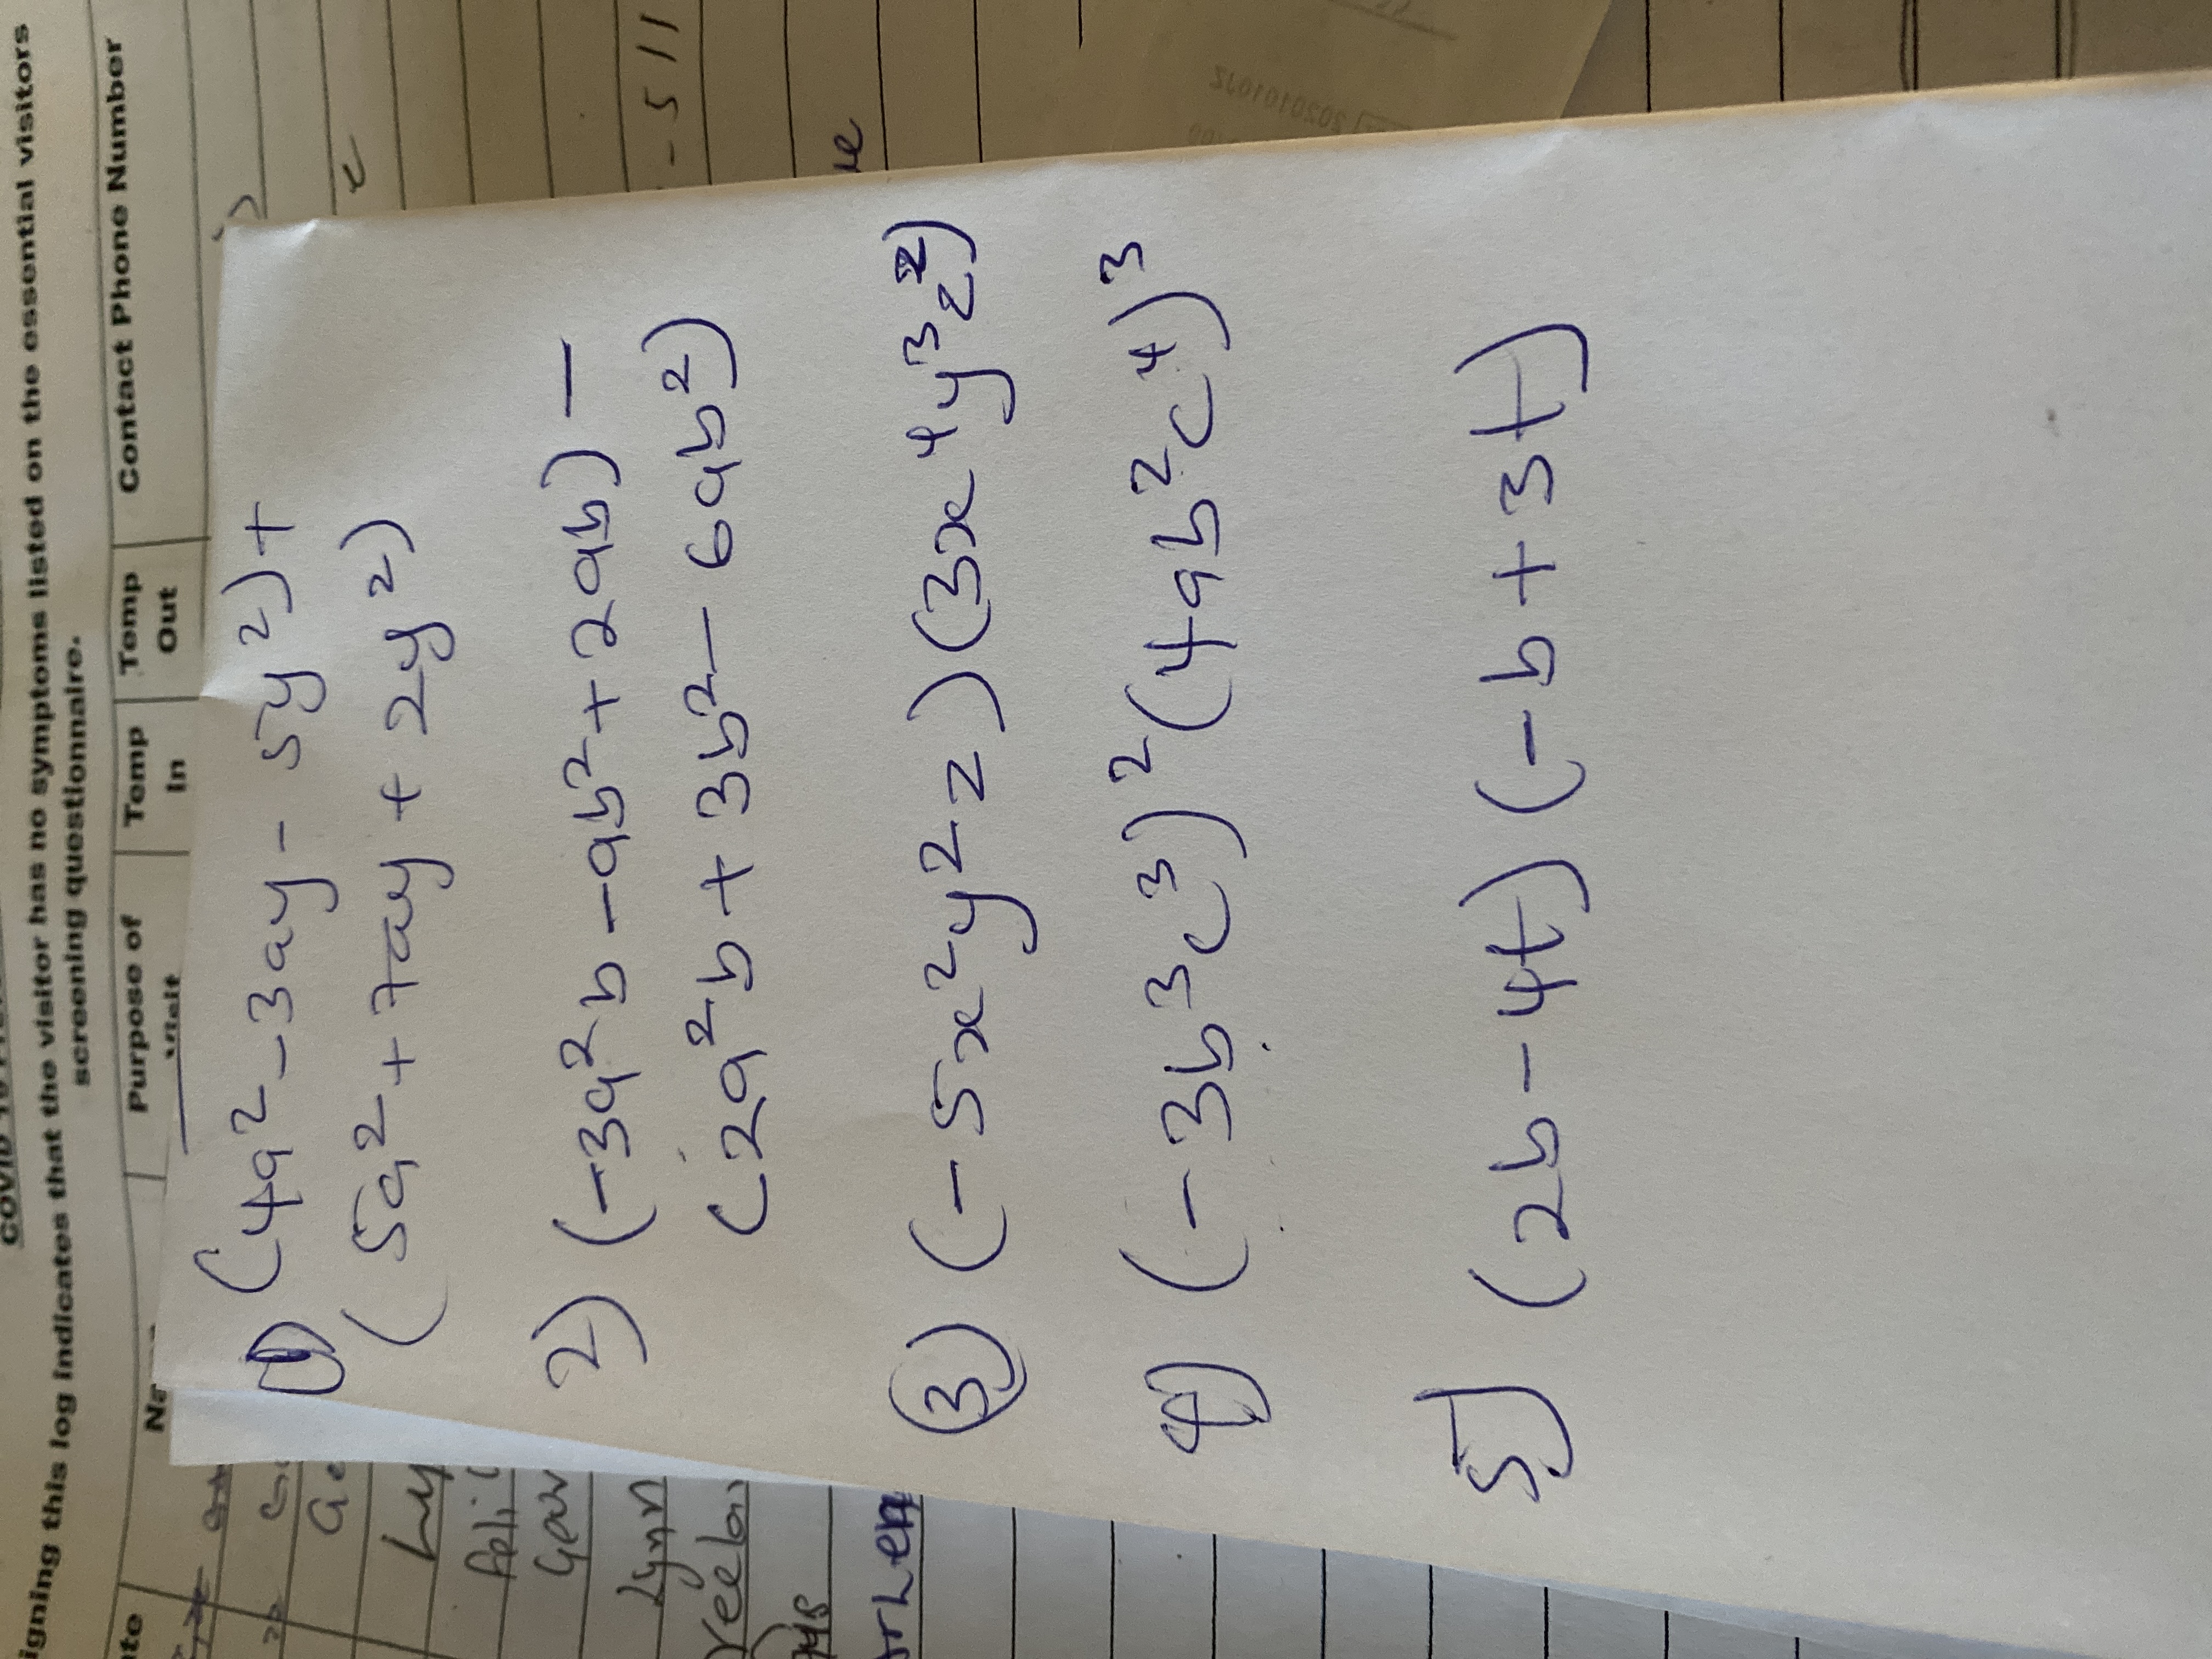 igning this log indicates that the visitor has no symptoms listed on the essential visitors
screening questionnaire.
Purpose of
Temp
In
Temp
Out
Contact Phone Number
1) (4a² - 3ay - 5y²) +
(5a² + 7ay + 2y²)
2) (-3a²b - ab² + 2ab) -
(2a²b + 3b² - 6ab²)
3) (-5x²y²z)(3x⁴y³z²)
4) (-3b³c³)²(4ab²c⁴)³
5) (2b - 4t)(-b + 3t)
20201010JZ